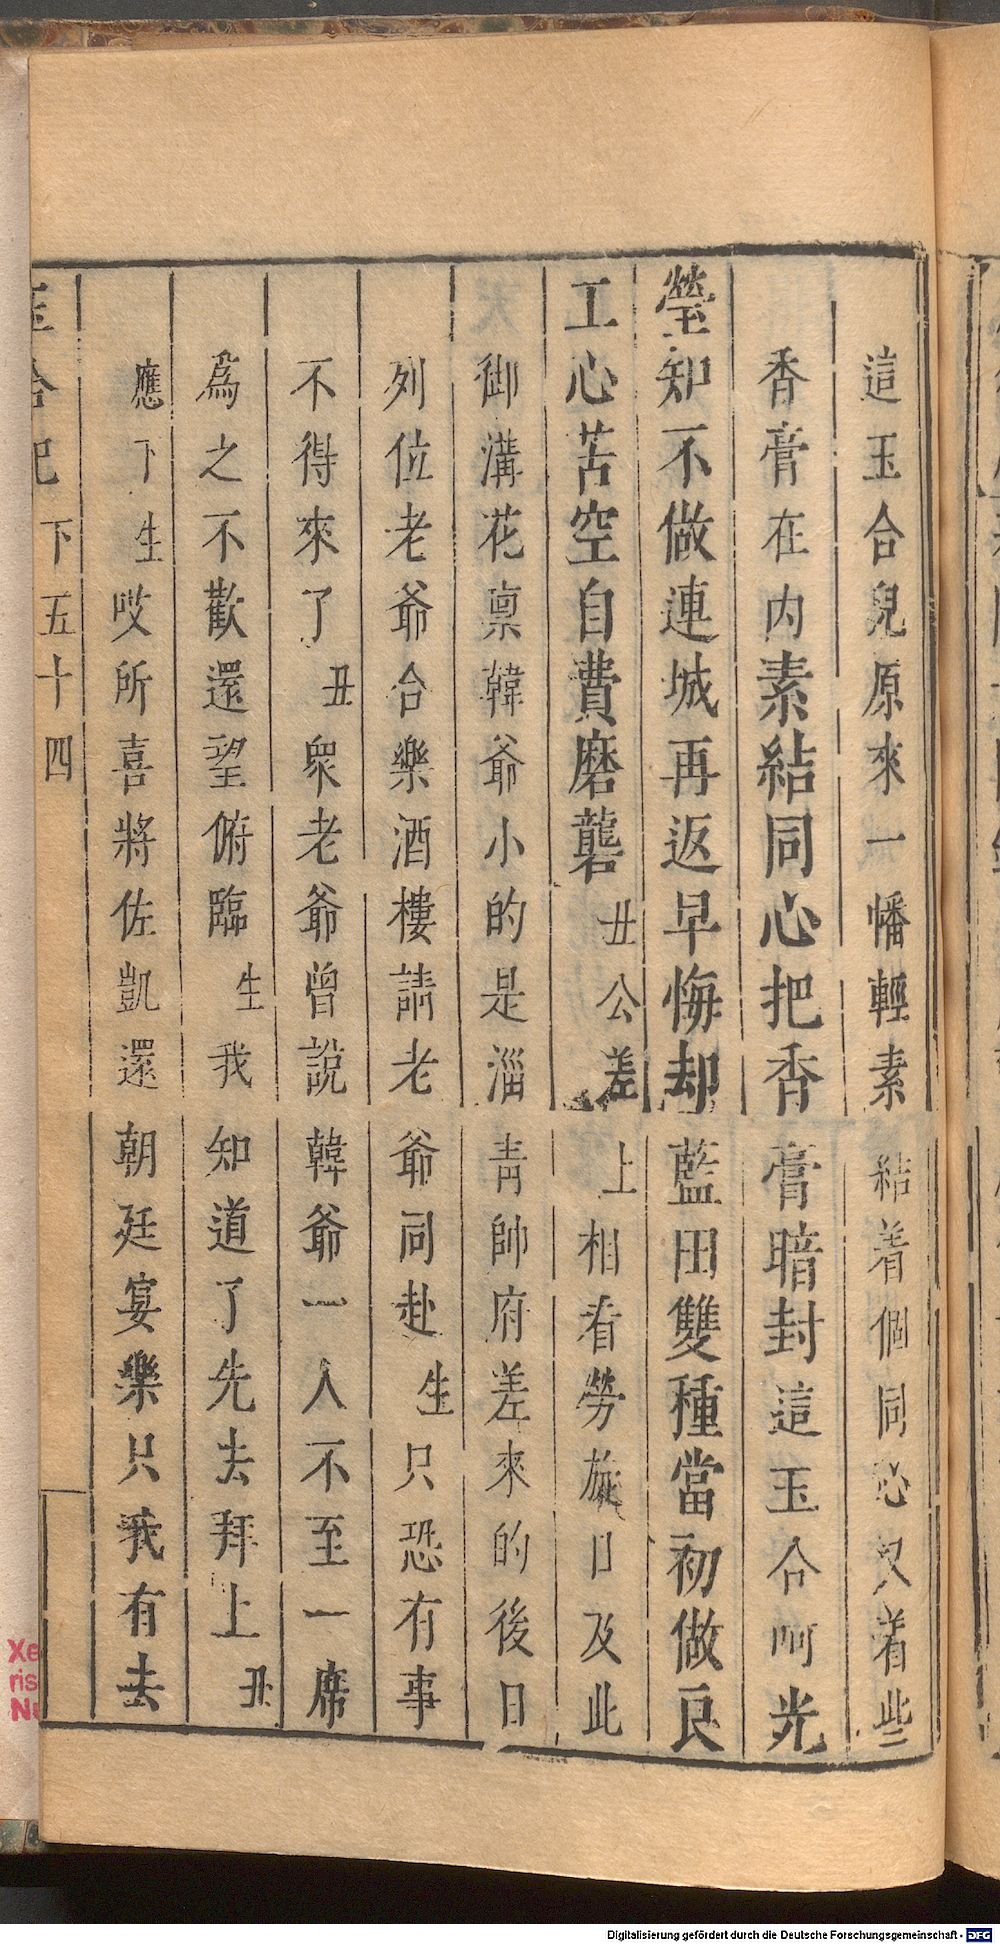 這玉合兒原來一幡輕素結着個同心又着些
香膏在内素結同心把香膏暗封這玉合呵光
瑩知不做連城再返早悔却藍田雙種當初做良
工心苦空自費磨礱丑公差上相看勞旋日及此
御溝花禀韓爺小的是淄青帥府差來的後日
列位老爺合樂酒樓請老爺同赴生只恐有事
不得來了丑衆老爺曾說韓爺一人不至一席
爲之不歡還望俯臨生我知道了先去拜上丑
應下生哎所喜將佐凱還朝廷宴樂只我有去
玉合記 下五十四
Digitalisierung gefördert durch die Deutsche Forschungsgemeinschaft - DFG